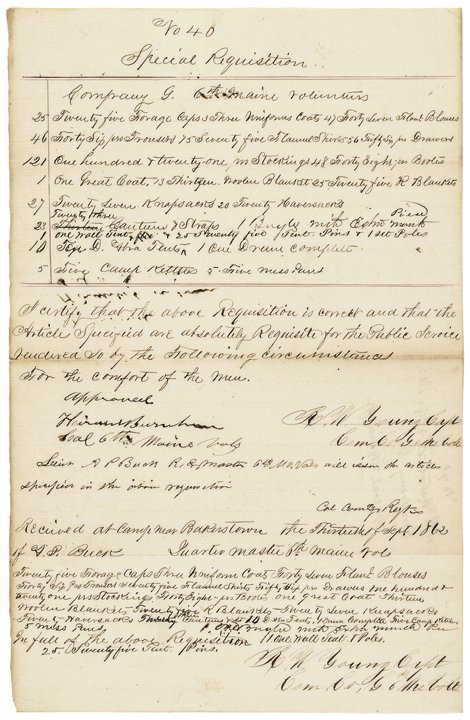 No 40
Special Requisition
Company G. 6th Maine Volunters
25 Twenty five Forage Caps 3 Three Uniforms Coats 47 Forty Seven Flanl Blouses
46 Forty Six prs Trousers 75 Seventy five Flannel Shirts 56 Fifty Six prs Drawers
121 One hundred & twenty one prs Stockings 48 Forty Eight prs Bootes
1 One Great Coat, 13 Thirteen Woolen Blanket 25 Twenty five R Blankets
27 Twenty Seven Knapsacks 20 Twenty Haversacks
Twenty three
23 Canteens & Straps 1 Bugle with Extra mouth Piece
one Wall Tent & 25 Twenty five Tent Pins & 1 set Poles
10 D. Tents 1 One Drum Complete
5 Five Camp Kettles 5 Five mess Pans
I certify that the above Requisition is correct and that the
Article Specified are absolutely Requisite for the Public Service
rendered So by the Following circumstances
For the comfort of the men.
Approved
Hiram Burnham
Col 6th Maine Vols
R W Young Cpt
Com. C. G. Me Vols
Lieut A P Buck R. Q. master 6th Me Vols will issue the articles
specified in the above requisition
Col Comdg Regt
Received at Camp near Bakerstown the Thirteenth of Sept 1862
of A. P. Buck Quarter master 6th Maine Vol
Twenty five Forage Caps Three Uniform Coat Forty Seven Flanl Blouses
Forty Six Prs Trousers Seventy five Flannel Shirts Fifty Six prs Drawers one hundred &
twenty one prs Stocking Forty Eight prs Boots one Great Coat Thirteen
Woolen Blankets Twenty five R Blankets Twenty Seven Knapsacks
Twenty Haversacks Canteens 10 D Tent, 1 Drum Complete Five Camp Kettles
5 mess Pans 1 Bugle with Extra mouth Pce
In full of the above Requisition 1 One Wall Tent & Poles.
25 Twenty five Tent Pins.
R W Young Cpt
Com. Co, G 6th Me Vols